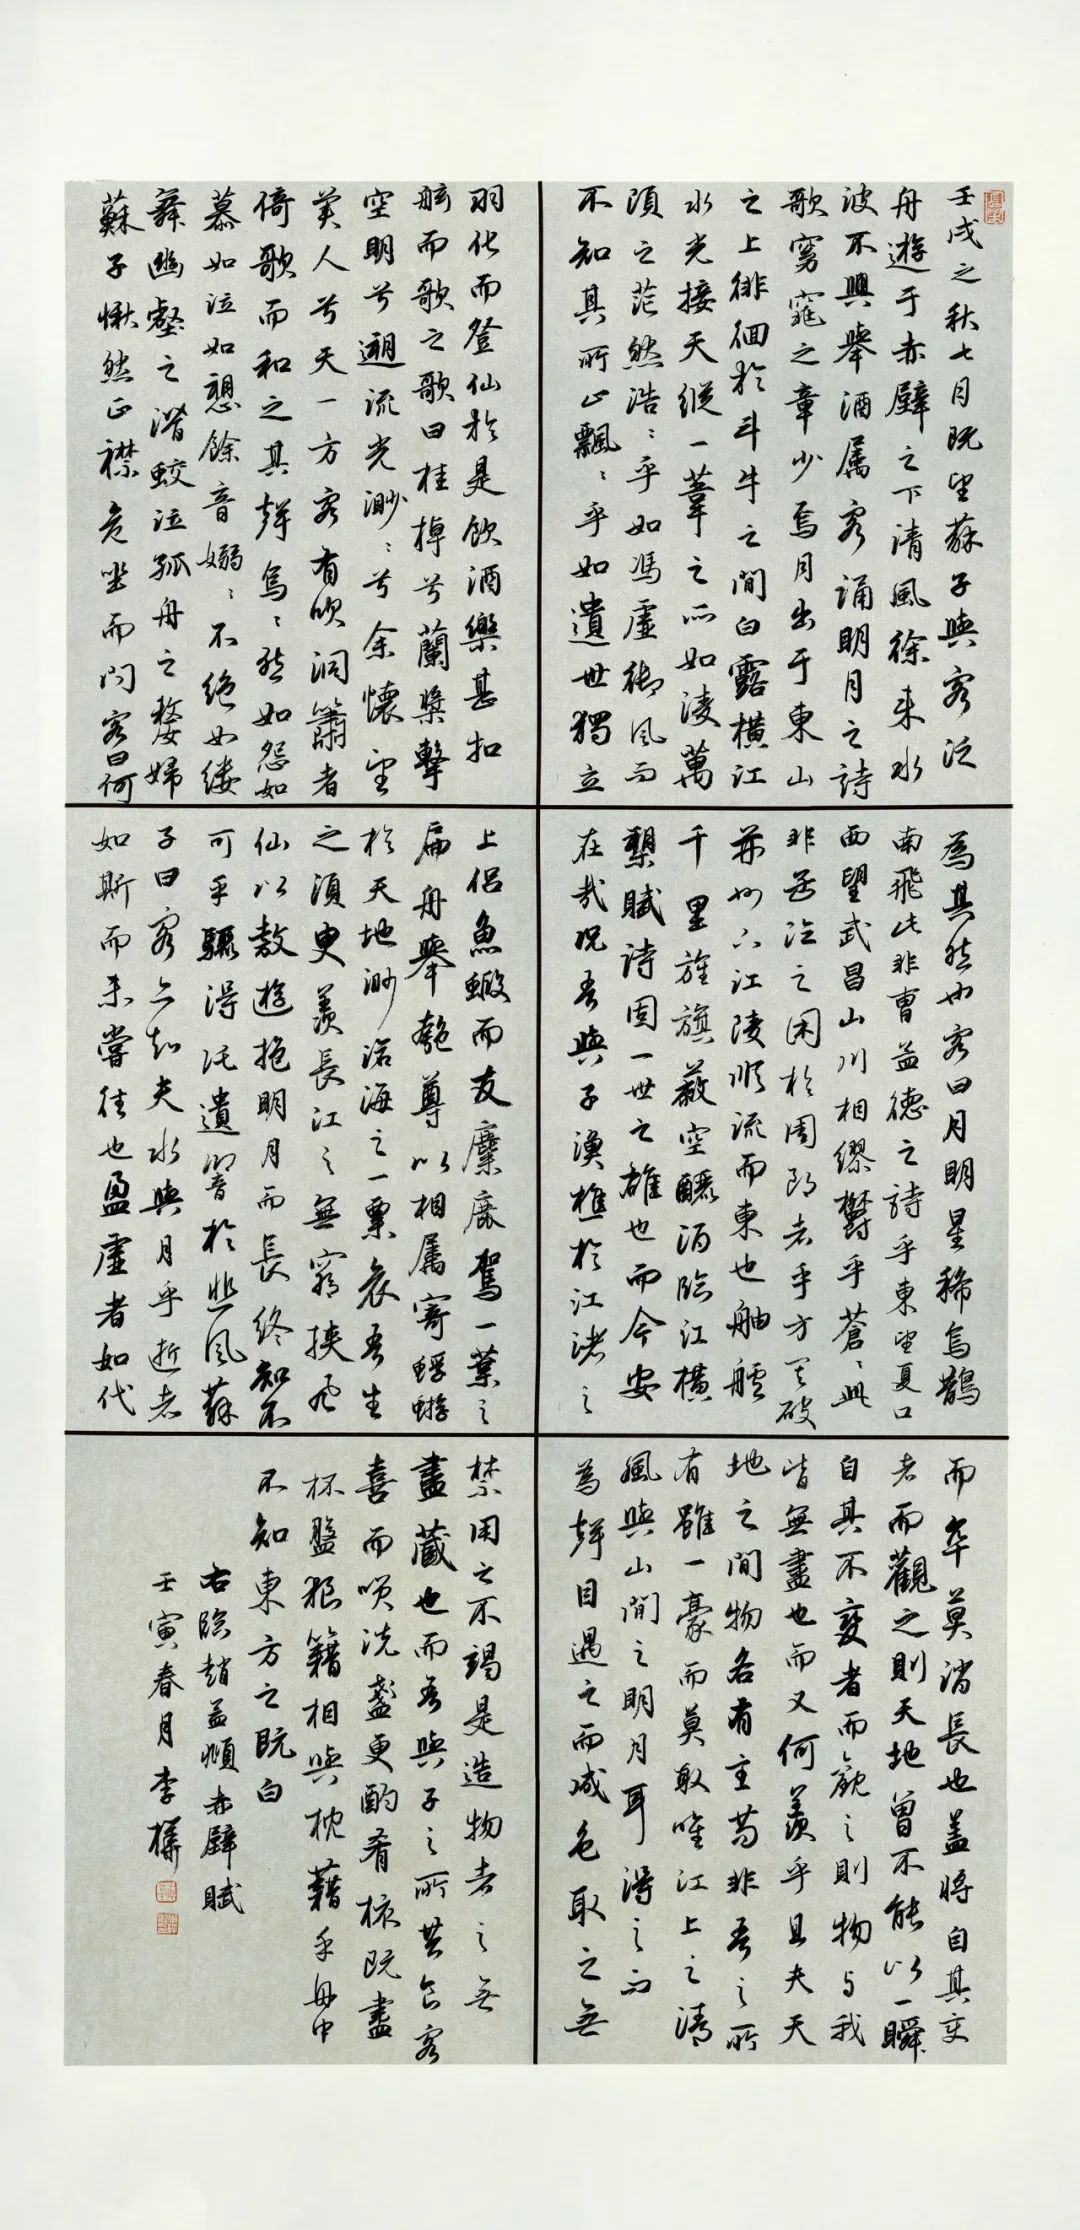 壬戌之秋七月既望蘇子與客泛
舟遊于赤壁之下清風徐来水
波不興舉酒属客誦明月之詩
歌窈窕之章少焉月出于東山
之上徘徊於斗牛之間白露橫江
水光接天縱一葦之所如淩萬
頃之茫然浩〻乎如馮虛御風而
不知其所止飄〻乎如遺世獨立
羽化而登仙於是飲酒樂甚扣
舷而歌之歌曰桂棹兮蘭槳擊
空明兮遡流光渺〻兮余懷望
美人兮天一方客有吹洞簫者
倚歌而和之其聲烏〻然如怨如
慕如泣如想餘音嫋〻不絕如縷
舞幽壑之潛蛟泣孤舟之嫠婦
蘇子愀然正襟危坐而問客曰何
為其然也客曰月明星稀烏鵲
南飛此非曹孟德之詩乎東望夏口
西望武昌山川相繆鬱乎蒼〻此
非孟德之困於周郎者乎方其破
荊州下江陵順流而東也舳艫
千里旌旗蔽空釃酒臨江橫
槊賦詩固一世之雄也而今安
在哉況吾與子漁樵於江渚之
上侶魚蝦而友麋鹿駕一葉之
扁舟舉匏尊以相属寄蜉蝣
於天地渺滄海之一粟哀吾生
之須臾羨長江之無窮挾飛
仙以敖遊抱明月而長終知不
可乎驟得託遺響於悲風蘇
子曰客亦知夫水與月乎逝者
如斯而未嘗往也盈虛者如代
而卒莫消長也盖將自其变
者而觀之則天地曾不能以一瞬
自其不变者而觀之則物与我
皆無盡也而又何羨乎且夫天
地之間物各有主苟非吾之所
有雖一豪而莫取唯江上之清
風與山間之明月耳得之而
為聲目遇之而成色取之無
禁用之不竭是造物者之無
盡藏也而吾與子之所共食客
喜而笑洗盞更酌肴核既盡
杯盤狼籍相與枕藉乎舟中
不知東方之既白
右臨趙孟頫赤壁賦
壬寅春月李